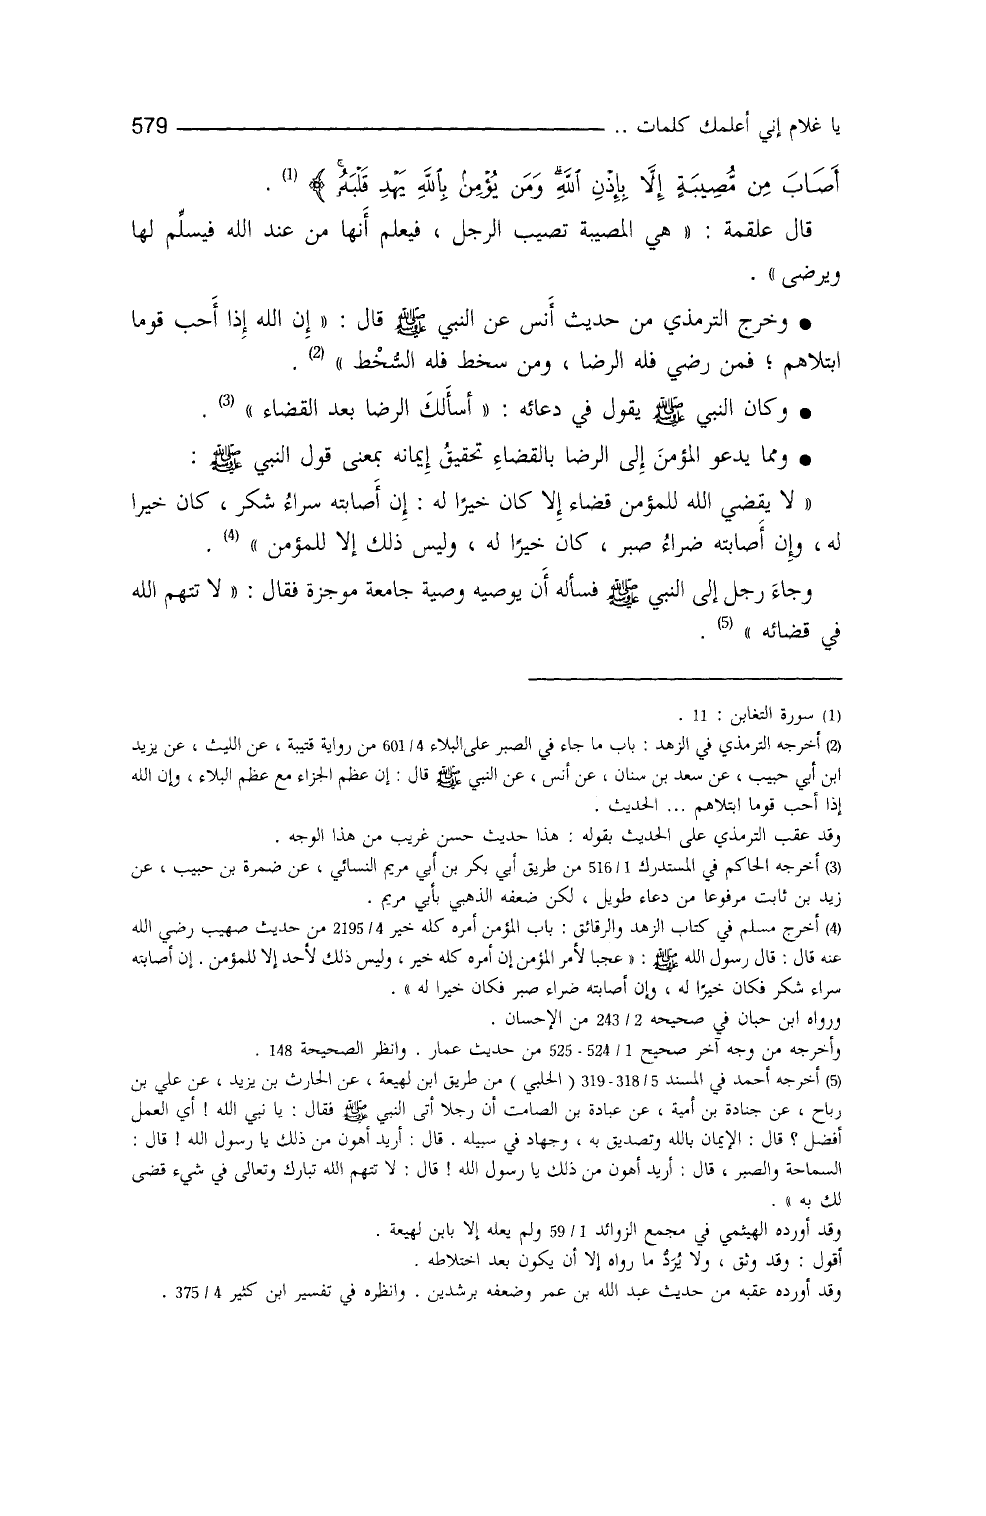 يا غلام إني أعلمك كلمات .. 579
أَصَابَ مِن مُّصِيبَةٍ إِلَّا بِإِذْنِ ٱللَّهِۗ وَمَن يُؤْمِنۢ بِٱللَّهِ يَهْدِ قَلْبَهُۥۚ ﴾ (1) .
قال علقمة : « هي المصيبة تصيب الرجل ، فيعلم أَنها من عند الله فيسلِّم لها
ويرضى » .
● وخرج الترمذي من حديث أَنس عن النبي ﷺ قال : « إِن الله إِذا أَحب قوما
ابتلاهم ؛ فمن رضي فله الرضا ، ومن سخط فله السُّخْط » (2) .
● وكان النبي ﷺ يقول في دعائه : « أسأَلكَ الرضا بعد القضاء » (3) .
● ومما يدعو المؤمنَ إِلى الرضا بالقضاءِ تحقيقُ إِيمانه بمعنى قول النبي ﷺ :
« لا يقضي الله للمؤمن قضاء إِلا كان خيرًا له : إِن أَصابته سراءُ شكر ، كان خيرا
له ، وإِن أَصابته ضراءُ صبر ، كان خيرًا له ، وليس ذلك إلا للمؤمن » (4) .
وجاءَ رجل إلى النبي ﷺ فسأله أَن يوصيه وصية جامعة موجزة فقال : « لا تتهم الله
في قضائه » (5) .
(1) سورة التغابن : 11 .
(2) أخرجه الترمذي في الزهد : باب ما جاء في الصبر على البلاء 601/4 من رواية قتيبة ، عن الليث ، عن يزيد
ابن أبي حبيب ، عن سعد بن سنان ، عن أنس ، عن النبي ﷺ قال : إن عظم الجزاء مع عظم البلاء ، وإن الله
إذا أحب قوما ابتلاهم ... الحديث .
وقد عقب الترمذي على الحديث بقوله : هذا حديث حسن غريب من هذا الوجه .
(3) أخرجه الحاكم في المستدرك 516/1 من طريق أبي بكر بن أبي مريم النسائي ، عن ضمرة بن حبيب ، عن
زيد بن ثابت مرفوعا من دعاء طويل ، لكن ضعفه الذهبي بأبي مريم .
(4) أخرج مسلم في كتاب الزهد والرقائق : باب المؤمن أمره كله خير 2195/4 من حديث صهيب رضي الله
عنه قال : قال رسول الله ﷺ : « عجبا لأمر المؤمن إن أمره كله خير ، وليس ذلك لأحد إلا للمؤمن . إن أصابته
سراء شكر فكان خيرًا له ، وإن أصابته ضراء صبر فكان خيرا له » .
ورواه ابن حبان في صحيحه 243/2 من الإحسان .
وأخرجه من وجه آخر صحيح 524/1 - 525 من حديث عمار . وانظر الصحيحة 148 .
(5) أخرجه أحمد في المسند 318/5-319 ( الحلبي ) من طريق ابن لهيعة ، عن الحارث بن يزيد ، عن علي بن
رباح ، عن جنادة بن أمية ، عن عبادة بن الصامت أن رجلا أتى النبي ﷺ فقال : يا نبي الله ! أي العمل
أفضل ؟ قال : الإيمان بالله وتصديق به ، وجهاد في سبيله . قال : أريد أهون من ذلك يا رسول الله ! قال :
السماحة والصبر ، قال : أريد أهون من ذلك يا رسول الله ! قال : لا تتهم الله تبارك وتعالى في شيء قضى
لك به » .
وقد أورده الهيثمي في مجمع الزوائد 59/1 ولم يعله إلا بابن لهيعة .
أقول : وقد وثق ، ولا يُرَدُّ ما رواه إلا أن يكون بعد اختلاطه .
وقد أورده عقبه من حديث عبد الله بن عمر وضعفه برشدين . وانظره في تفسير ابن كثير 375/4 .